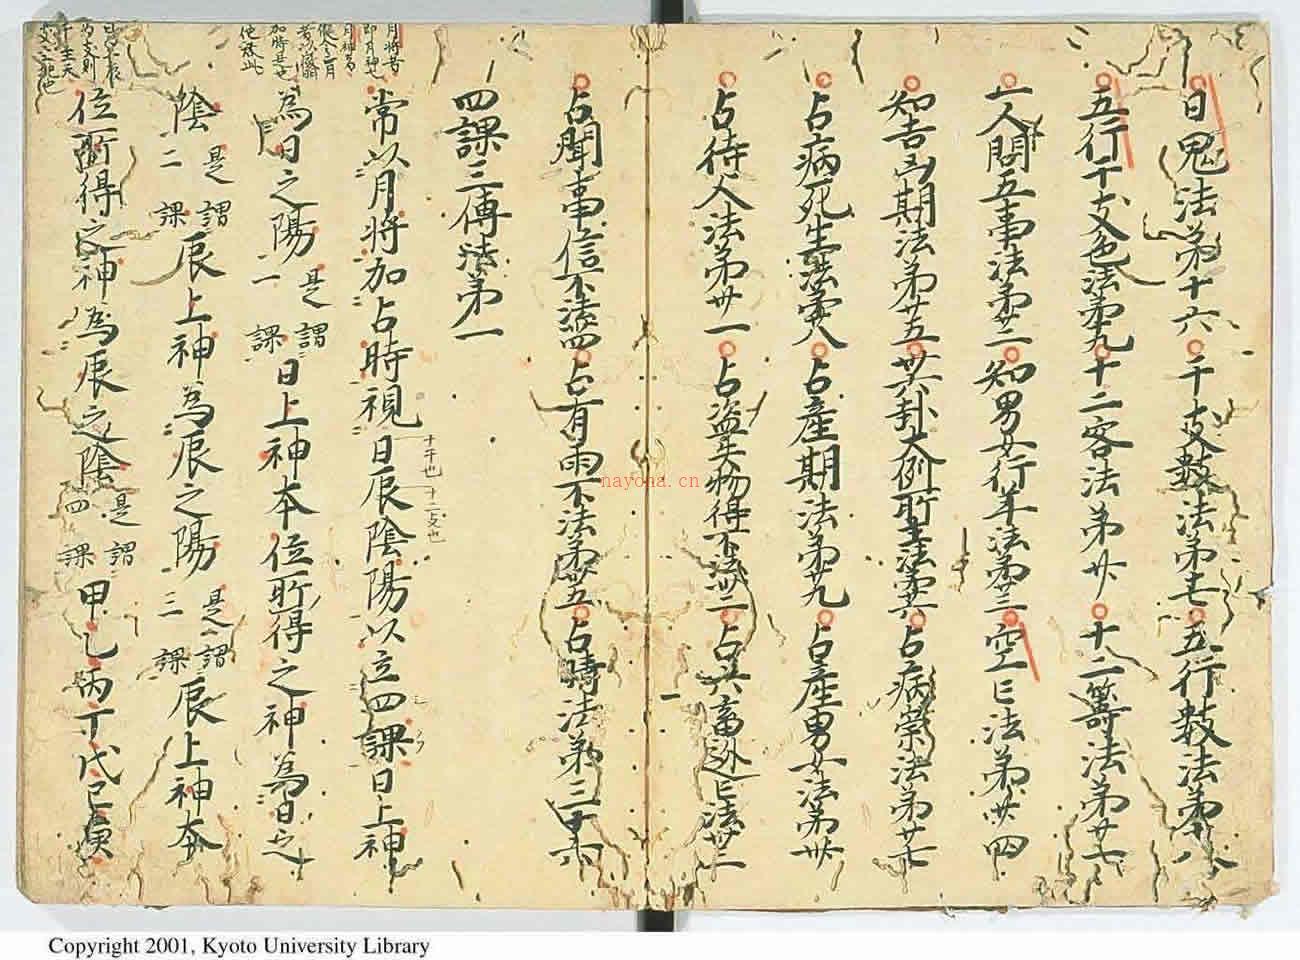 日鬼法第十六 干支數法第十七 五行數法第十八
五行干支色法第十九 十二客法第廿 十二籌法第廿一
一人問五事法第廿二 知男女行年法第廿三 空亡法第廿四
知吉凶期法第廿五 卅六卦大例所主法第廿六 占病祟法第廿七
占病死生法第廿八 占産期法第廿九 占産男女法第卅
占待人法第卅一 占盗失物得不法卅二 占六畜逃亡法卅三
占聞事信不法卅四 占有雨不法第卅五 占晴法第三十六
四課三傳法第一
常以月將加占時視日辰陰陽以立四課日上神
十干也 十二支也
月將者
即月神也
加時是也
為日之陽是謂一課日上神本位所得之神為日之
陰是謂二課辰上神為辰之陽是謂三課辰上神本
位所得之神為辰之陰是謂四課甲乙丙丁戊己庚
nayona.cn
Copyright 2001, Kyoto University Library